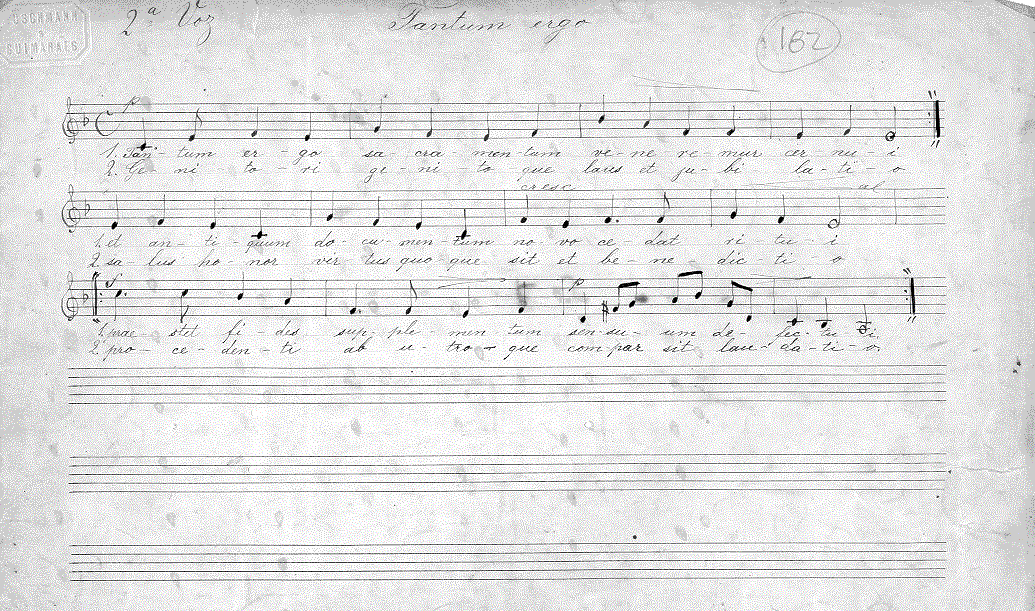 OSCHMANN
&
GUIMARAES
2ª Voz
Tantum ergo
162
p
1. Tan- tum er- go sa- cra- men- tum ve- ne- re- mur cer- nu- i
2. Ge- ni to- ri ge- ni- to que laus et ju- bi la- ti- o
cresc al
1. et an- ti- quum do- cu- men- tum no- vo ce- dat ri tu- i
2. sa- lus ho- nor vir- tus quo que sit et be- ne- dic- ti o
f p
1. prae- stet fi- des sup- ple- men- tum sen- su- um de-
2. pro- ce- den- ti ab u- tro- que com par sit lau- da- ti- o.